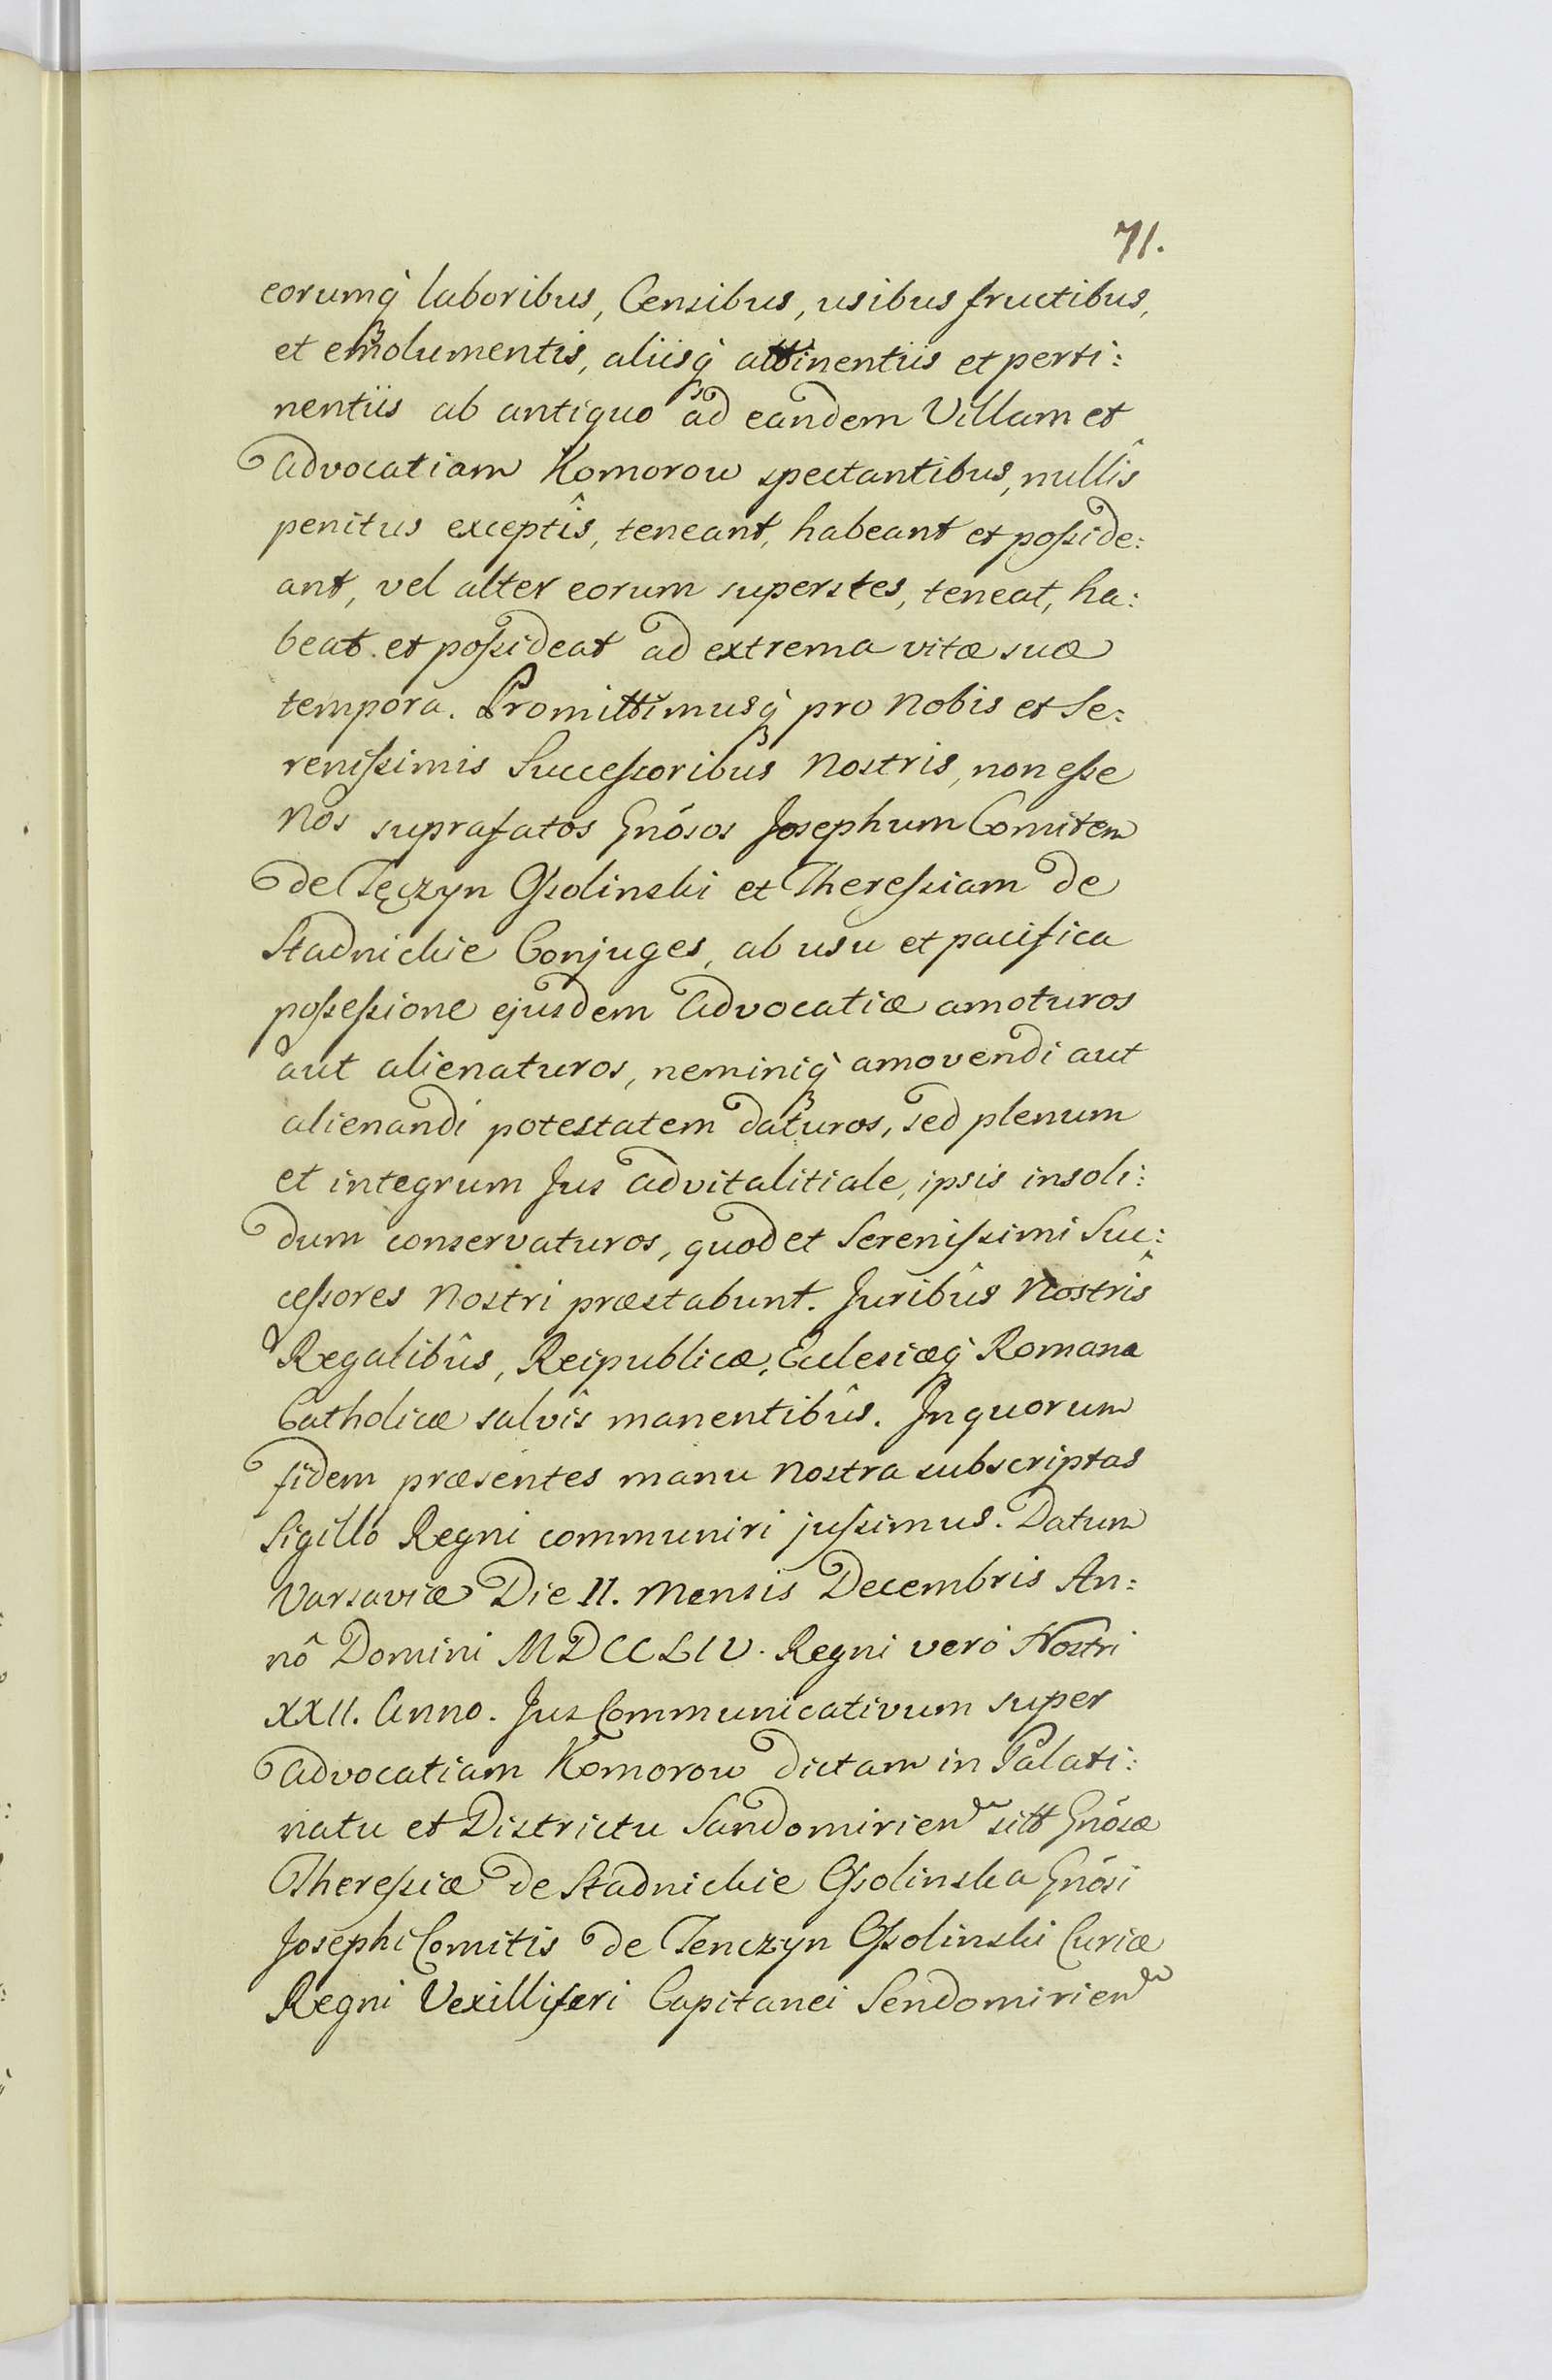 71.
eorumq̀ laboribus, Censibus, usibus fructibus,
et emolumentis, aliisq̀ attinentiis et perti:
nentiis ab antiquo ad eandem Villam et
advocatiam Komorow spectantibus, nullîs
penitus exceptîs, teneant, habeant et poſside:
ant, vel alter eorum superstes, teneat, ha:
beat et poſsideat ad extrema vitæ suæ
tempora. Promittimusq̀ pro Nobis et Se:
reniſsimis Succeſsoribus Nostris, non eſse
Nos suprafatos Gnósos Josephum Comitem
de Tęczyn Oſsolinski et Thereſsiam de
Stadnickie Conjuges, ab usu et pacifica
poſseſsione ejusdem advocatiæ amoturos
aut alienaturos, neminiq̀ amovendi aut
alienandi potestatem daturos, sed plenum
et integrum Jus advitalitiale, ipsis insoli:
dum conservaturos, quod et Sereniſsimi Suc:
ceſsores Nostri præstabunt. Juribûs Nostrîs
Regalibûs, Reipublicæ, Ecclesiæq̀ Romanæ
Catholicæ salvîs manentibûs. In quorum
fidem præsentes manu Nostra subscriptas
Sigillo Regni communiri juſsimus. Datum
Varsaviæ Die 11. Mensis Decembris An:
nô Domini MDCCLIV. Regni verò Nostri
XXII. Anno. Jus Communicativum super
advocatiam Komorow dictam in Palati:
natu et Districtu Sandomirien sitt Gnósæ
Thereſsiæ de Stadnickie Oſsolinska Gnósi
Josephi Comitis de Tenczyn Oſsolinski Curiæ
Regni Vexilliferi Capitanei Sendomirien